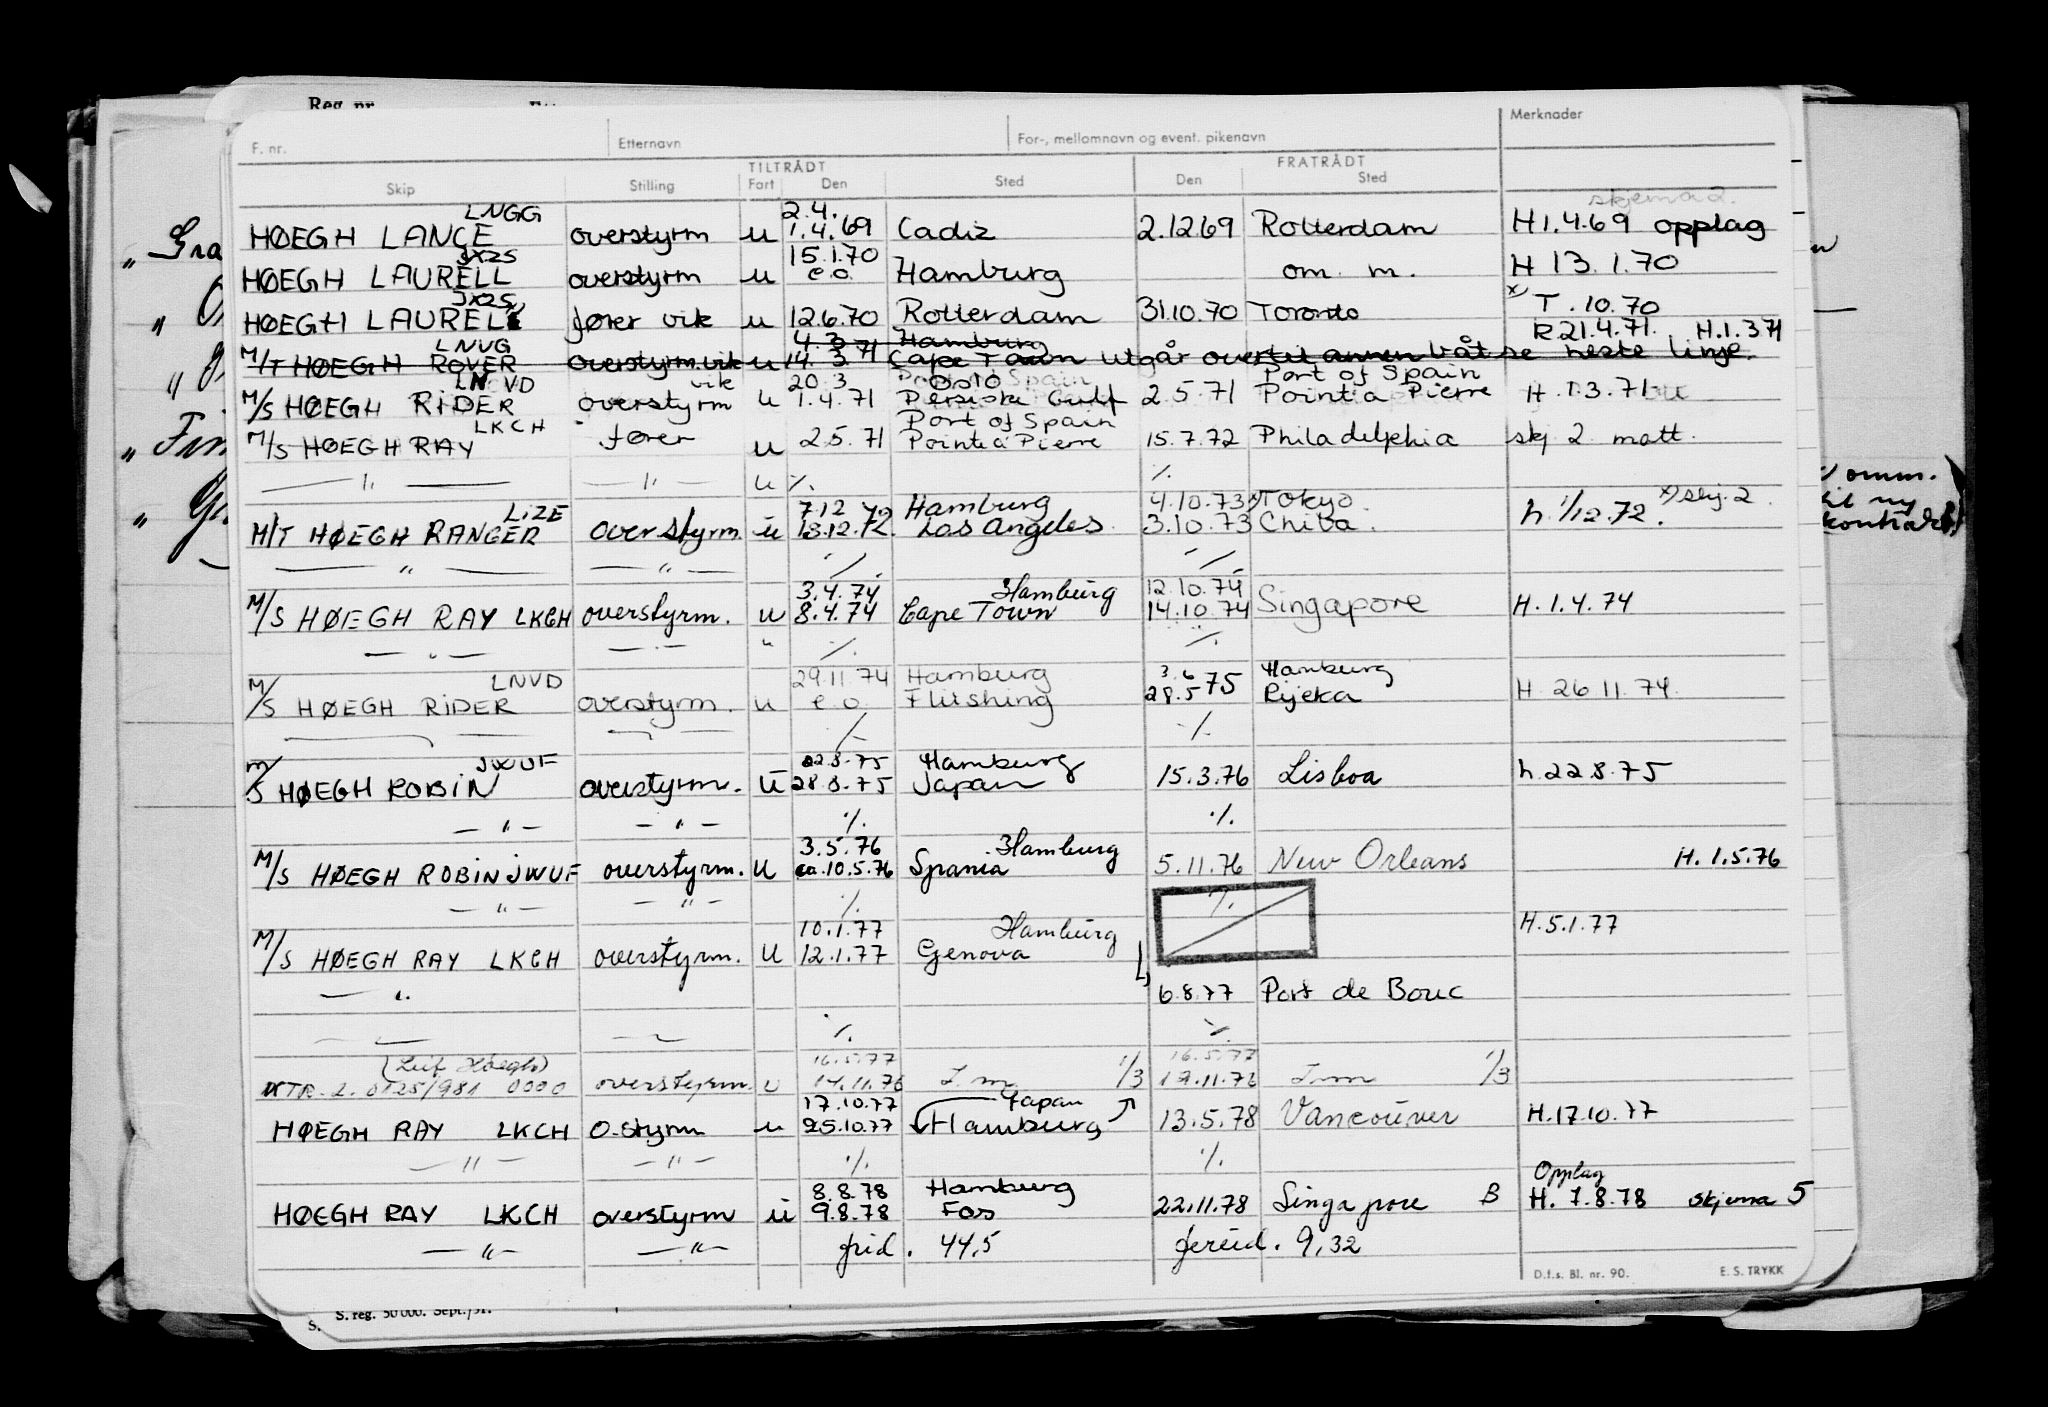 Reg. nr.
F. nr. Etternavn For-, mellomnavn og event. pikenavn Merknader
TILTRÅDT FRATRÅDT
Skip Stilling Fart Den Sted Den Sted
LNGG 2.4. skjema 2.
HØEGH LANCE overstyrm u 1.4.69 Cadiz 2.12.69 Rotterdam H 1.4.69 opplag
JX2S 15.1.70
HØEGH LAURELL overstyrm u e.o. Hamburg om. m. H 13.1.70
JX2S x) T .10.70
HØEGH LAUREL fører vik u 12.6.70 Rotterdam 31.10.70 Toronto R 21.4.71. H.1.3 71
LNVG 4.3 Hamburg
M/T HØEGH ROVER overstyrm. vik u 14.3.71 Cape Town utgår annen båt se neste linje.
LNVD vik 20.3 Oslo Port of Spain
M/S HØEGH RIDER overstyrm u 1.4.71 Persiske Gulf 2.5.71 Pointia Pierre H.1.3.71
LKCH Port of Spain
M/S HØEGH RAY fører u 2.5.71 Pointe a Pierre 15.7.72 Philadelphia skj 2 mott.
— " — — " — u ./. ./.
LIZE 7.12 72 Hamburg 4.10.73 x) Tokyo x) skj. 2
M/T HØEGH RANGER overstyrm. u 13.12.72. Los Angeles. 3.10.73 Chiba. h. 1/12.72.
— " — — " — ./. ./.
3.4.74 Hamburg 12.10.74
M/S HØEGH RAY LKCH overstyrm. u 8.4.74 Cape Town 14.10.74 Singapore H.1.4.74
— " — — " — " ./. ./.
LNVD 29.11.74 Hamburg 3.6 Hamburg
M/S HØEGH RIDER overstyrm. u e.o. Flushing 28.5 75 Rijeka H 26.11.74.
./. ./.
JWUF 22.8.75 Hamburg
M/S HØEGH ROBIN overstyrm. u 28.8.75 Japan 15.3.76 Lisboa h.22.8.75
— " — — " — ./. ./.
3.5.76 Hamburg
M/S HØEGH ROBIN JWUF overstyrm. u ca.10.5.76 Spania 5.11.76 New Orleans H.1.5.76
— " — — " — ./. ./.
10.1.77 Hamburg H.5.1.77
M/S HØEGH RAY LKCH overstyrm. u 12.1.77 Genova
— " 6.8.77 Port de Bouc
./. ./.
(Leif Høegh) 16.5.77 16.5.77
KTR. 2. 0125/981 0000 overstyrm. u 14.11.76 I.m. 1/3 19.11.76 I.m 1/3
17.10.77 Japan
HØEGH RAY LKCH O.styrm u 25.10.77 Hamburg 13.5.78 Vancouver H.17.10.77
— " — — " — ./. ./.
8.8.78 Hamburg Opplag
HØEGH RAY LKCH overstyrm u 9.8.78 Fos 22.11.78 Singapore B H. 7.8.78 skjema 5
— " — — " — frid. 44,5 fereid. 9,32
D.f.s. Bl. nr. 90. E. S. TRYKK
S. reg. 50 000. Sept./51.
omm.
til ny
kontrakt